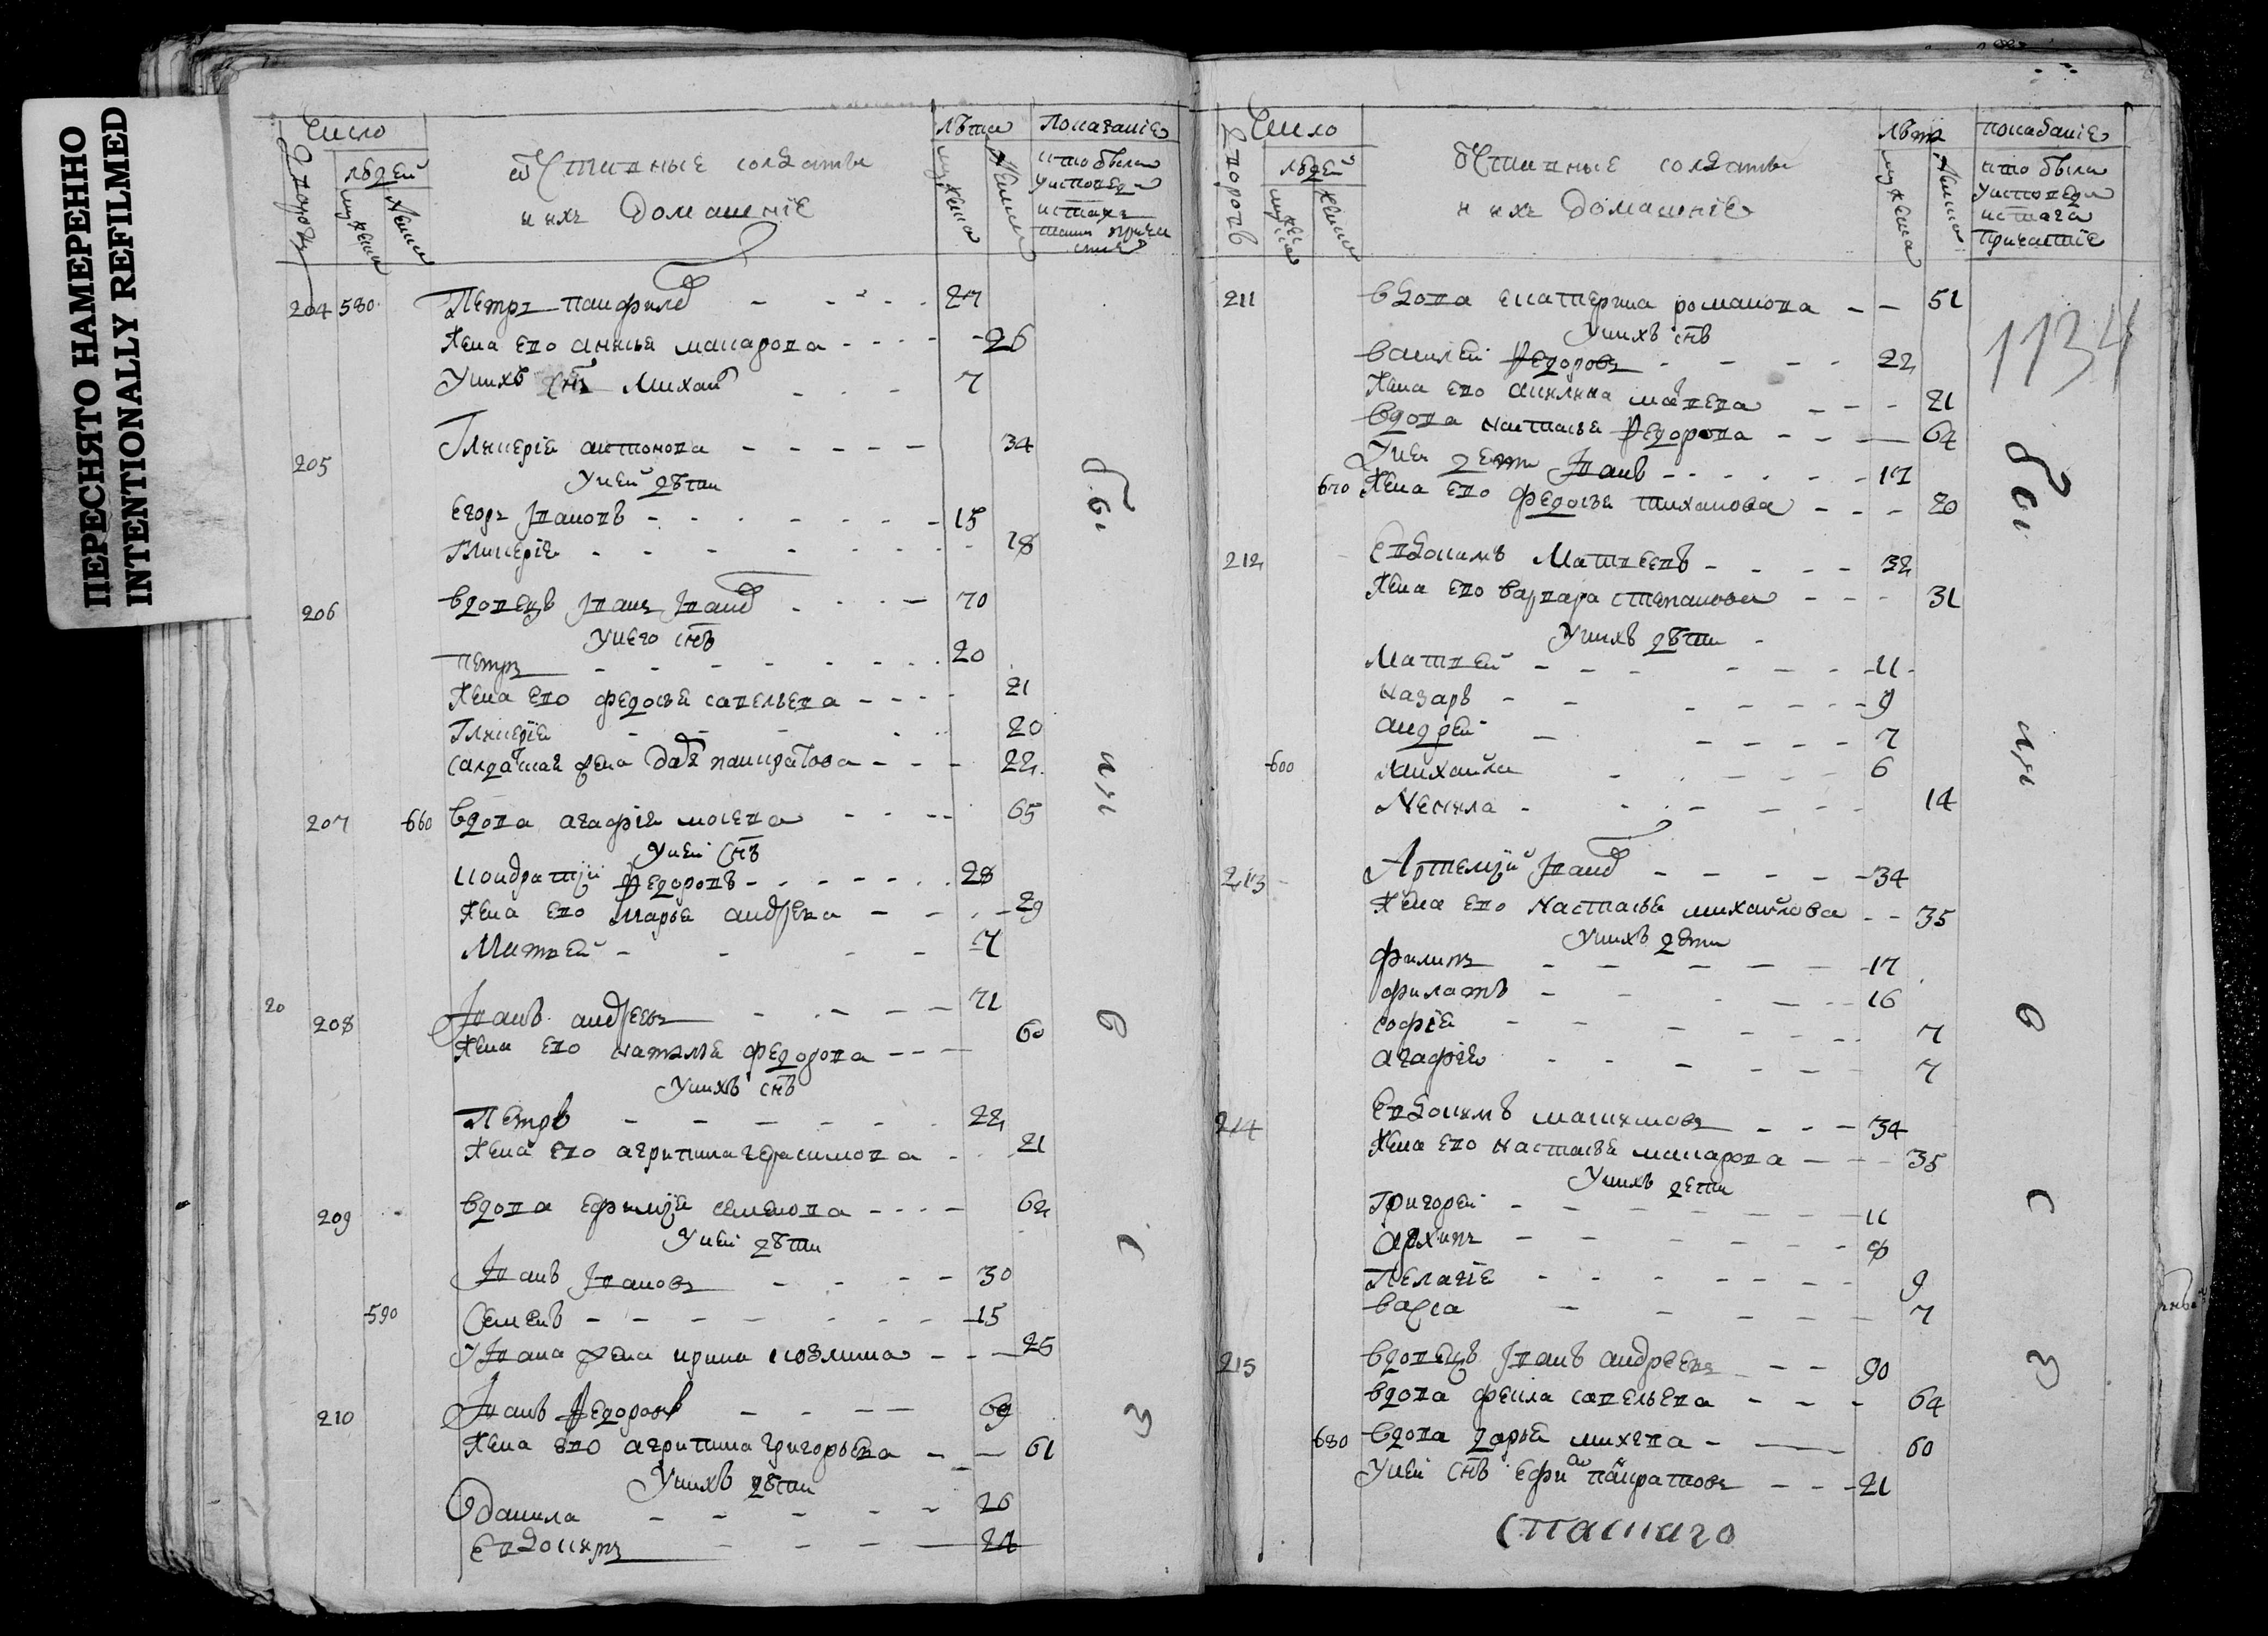 ПЕРЕСНЯТО НАМЕРЕННО
INTENTIONALLY REFILMED
Число
людей
дворовъ
мужска
женска
отставные солдаты
и ихъ домашніе
лѣта
мужска
женска
показаніе
кто былъ
у исповеди
204 580 Петръ панфилов 27
жена его анисья макарова 26
У нихъ снъ Михаил 7
205 Гликерія антонова 34
У ней дѣти
Егоръ Ивановъ 15
Гликерія 18
206 вдовецъ Иванъ Иванов 70
У него снъ
петръ 20
жена его федосья савельева 21
Гликерія 20
салдатцкая жена Даря панкратова 22
207 660 вдова агафія мосева 65
У ней снъ
кондратій Федоровъ 28
жена его Марья андреева 29
Матвей 7
20 208 Иванъ андреевъ 71
жена его наталья федорова 60
У нихъ снъ
Петръ 22
жена его агрипина герасимова 21
209 вдова ефимія семенова 62
У ней дѣти
Иванъ Ивановъ 30
590 Семенъ 15
У Ивана жена ирина козмина 25
210 Иванъ Федоровъ 69
жена его агрипина григорьева 61
У нихъ дѣти
Данила 26
Евдокимъ 24
были
и
с
Число
дворовъ
людей
мужска
женска
отставные солдаты
и ихъ домашніе
лѣта
мужска
женска
показаніе
кто были
у исповеди
и с таго
причастіе
1134
211 вдова екатерина романова 51
У нихъ снъ
василей Федоровъ 22
жена его акилина матвева 21
вдова настасья Федорова 64
У ней дети Иванъ 17
670 жена его федосья тиханова 20
212 Евдокимъ Матвеевъ 32
жена его варвара степанова 31
У нихъ дѣти
Матвей 11
назаръ 9
андрей 7
600 михайла 6
Ненила 14
213 Артемій Иванов 34
жена его настасья михайлова 35
У нихъ дети
филипъ 17
филатъ 16
софія 7
агафія 7
214 Евдокимъ максимовъ 34
жена его настасья макарова 35
У нихъ дети
Григорей 11
архипъ 8
Пелагіе 9
васса 7
215 вдовецъ Иванъ андреевъ 90
вдова фекла савельева 64
680 вдова дарья михева 60
У ней снъ ефим панкратовъ 21
были
и
с
статскаго